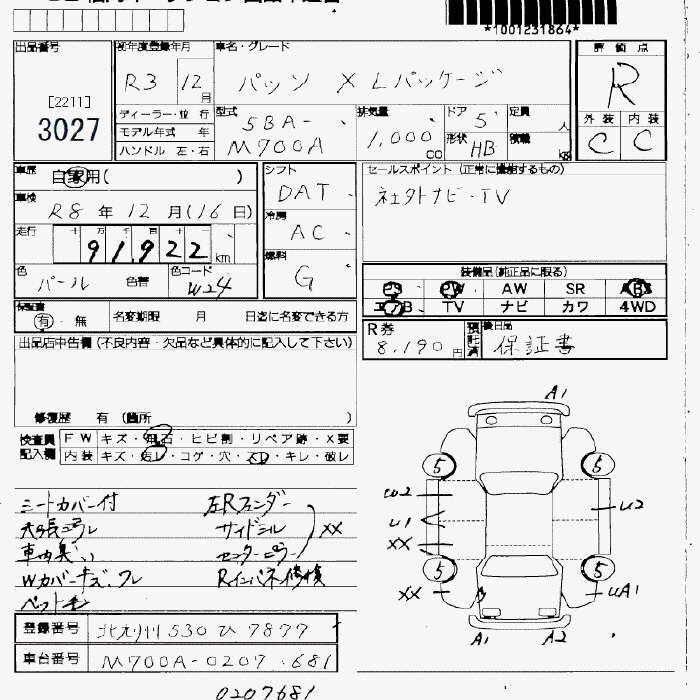 *1001231864*
出品番号 初年度登録年月 車名・グレード 評価点
[2211]
3027
R3 12月 パッソ X Lパッケージ R
ディーラー・並行
モデル年式 年
ハンドル 左・右
型式 5BA-
M700A
排気量 1,000 CC
ドア 5 定員 人
形状 HB 積載 kg
外装 内装
C C
車歴 自家用( )
車検 R8 年 12 月(16日)
走行 十 万 千 百 十 一
91,922 km
色 パール 色替 色コード W24
シフト DAT
冷房 AC
燃料 G
セールスポイント(正常に機能するもの)
社外ナビ・TV
装備品(純正品に限る)
PS PW AW SR ABS
エアB TV ナビ カワ 4WD
保証書 有・無 名変期限 月 日迄に名変できる方
R券 8,190円 預託済 後日品 保証書
出品店申告欄(不良内容・欠品など具体的に記入して下さい)
修復歴 有(箇所 )
検査員記入欄
FW キズ・飛石・ヒビ割・リペア跡・X要
内装 キズ・汚レ・コゲ・穴・スレ・キレ・破レ
シートカバー付
天張汚レ
車内臭い
Wカバーキズ、ワレ
ペット毛
左Rフェンダー
サイドシル
センターピラー
XX
Rインパネ修検
A1
5 5
W2
U1
XX
U2
5 5
XX
UA1
A1 A2
登録番号 北九州 530 ひ 7877
車台番号 M700A-0207681
0207681